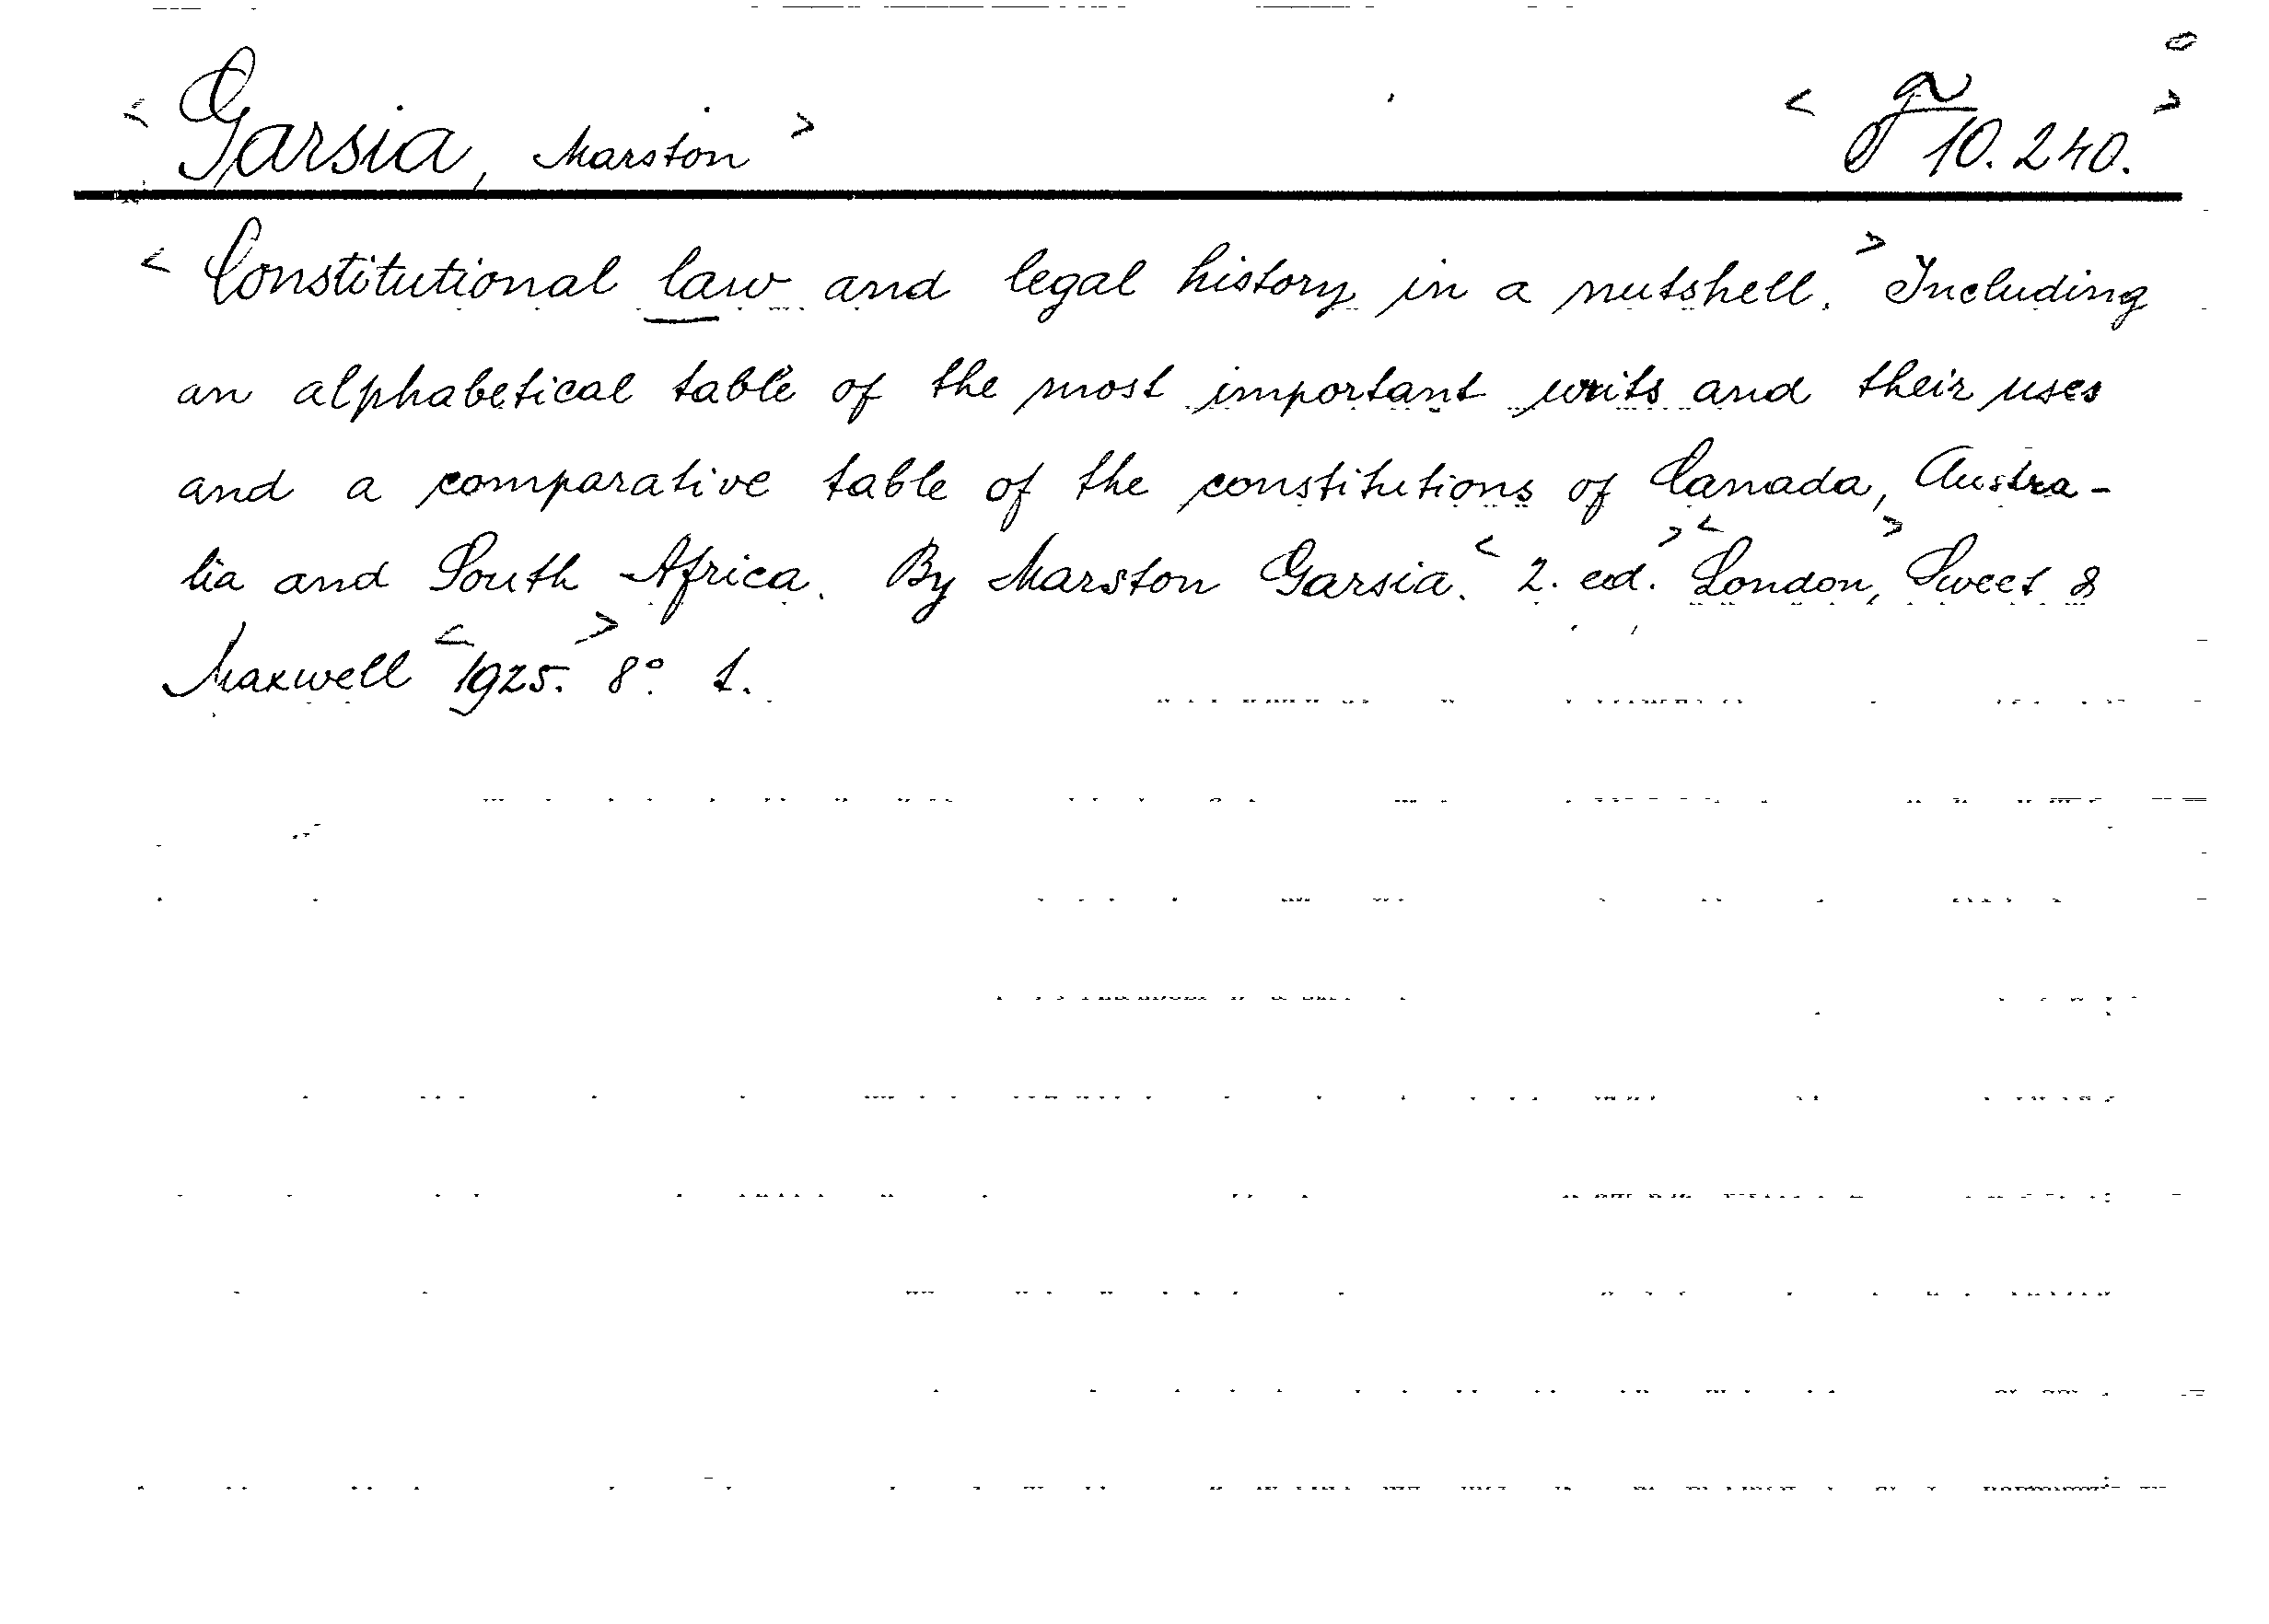 < Garsia, Marston > < F 10.240. >
< Constitutional law and legal history in a nutshell. > Including
an alphabetical table of the most important writs and their uses
and a comparative table of the constitutions of Canada, Austra-
lia and South Africa. By Marston Garsia. < 2. ed. > < London, > Sweet &
Maxwell < 1925. > 8° 1.